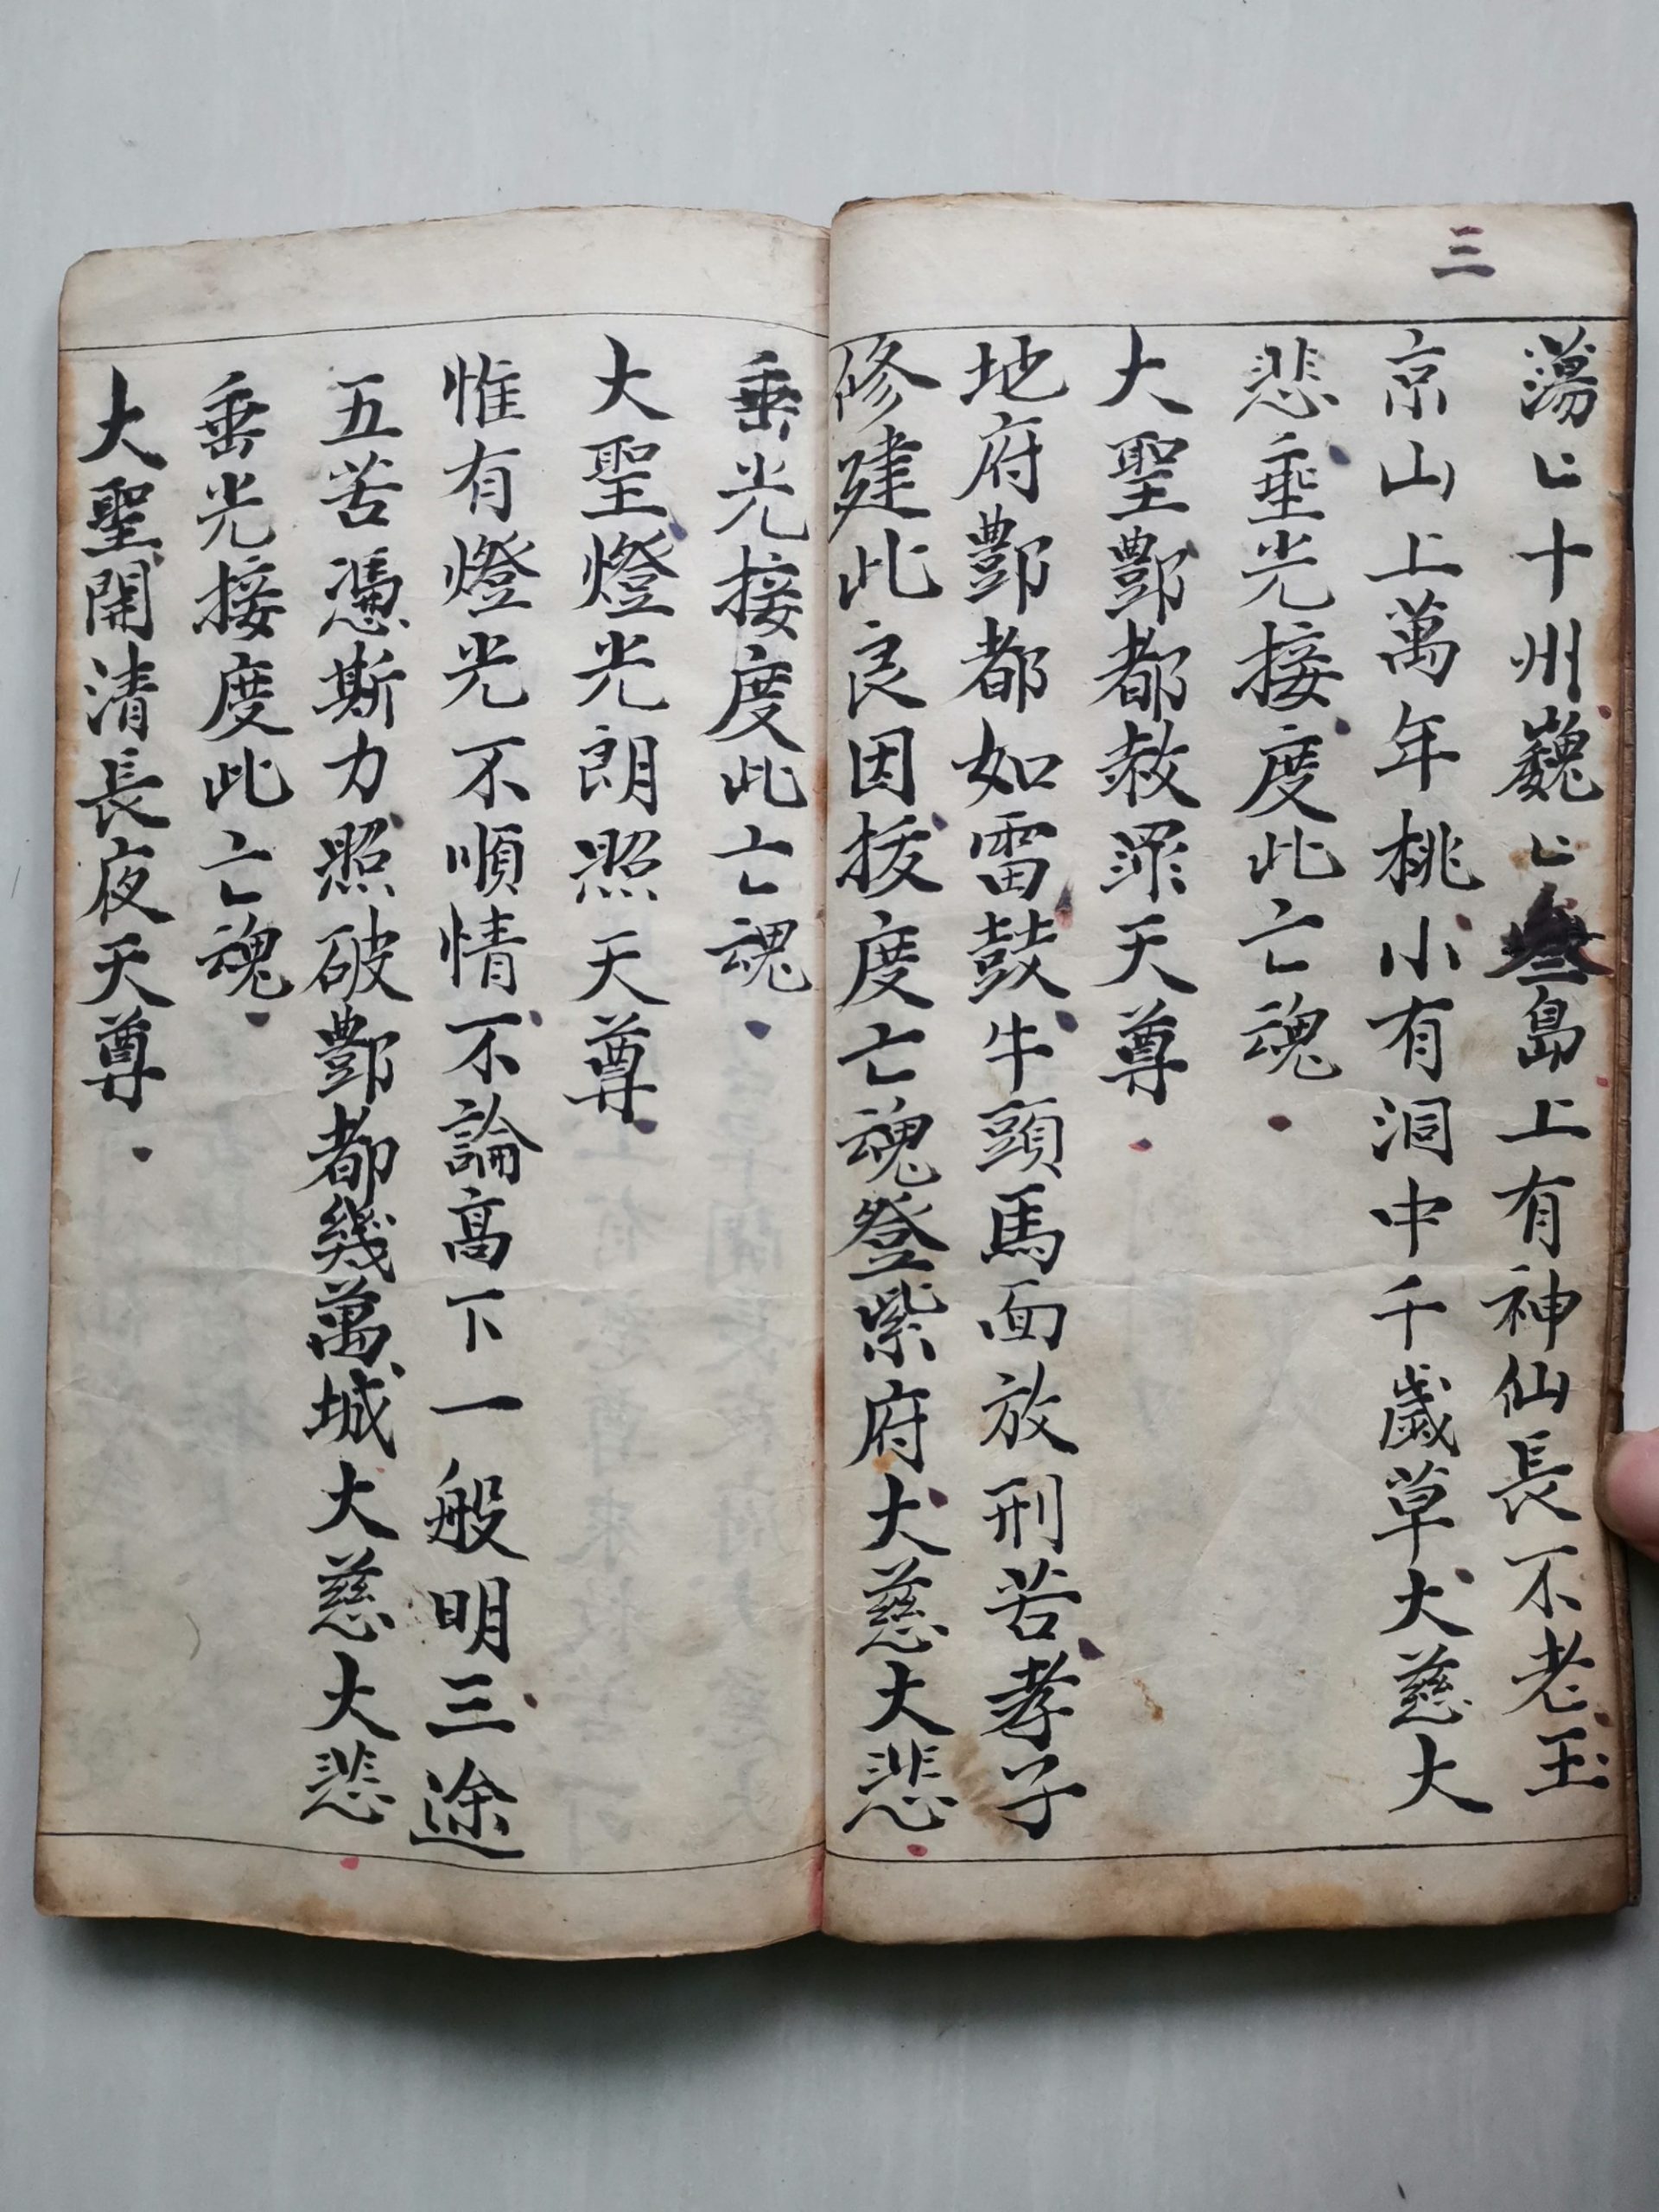 三
蕩〻十州巍〻叄島上有神仙長不老玉
京山上萬年桃小有洞中千歲草大慈大
悲垂光接度此亡魂
大聖酆都赦罪天尊
地府酆都如雷鼓牛頭馬面放刑苦孝子
修建此良因拔度亡魂登紫府大慈大悲
垂光接度此亡魂
大聖燈光朗照天尊
惟有燈光不順情不論高下一般明三途
五苦憑斯力照破酆都幾萬城大慈大悲
垂光接度此亡魂
大聖開清長夜天尊